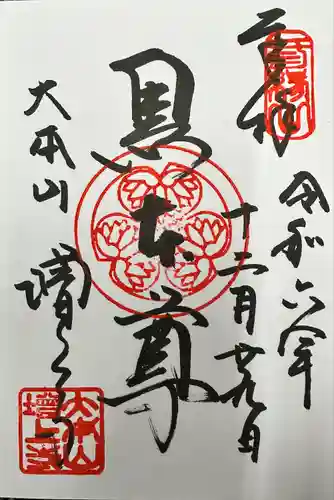 奉拝
三縁山
令和六年
十二月廿九日
黒本尊
大本山
増上寺
大本山
増上寺